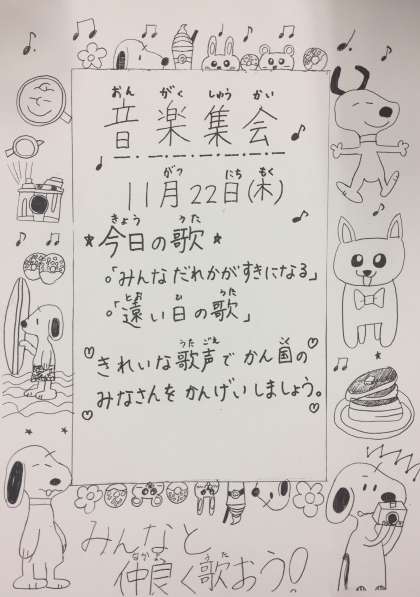 音楽集会
11月22日(木)
★今日の歌★
。「みんなだれかがすきになる」
。「遠い日の歌」
きれいな歌声でかん国の
みなさんをかんげいしましょう。
みんなと
仲良く歌おう!